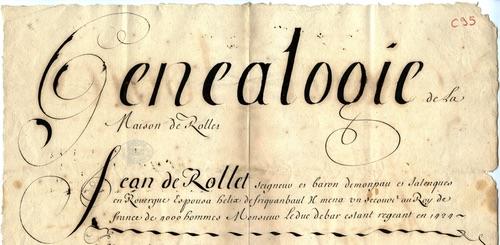 C95
Genealogie de la
Maison de Rolles
Jean de Rollet Seigneur et baron demonpau et Salengues
en Rouergue Espousa helix defriquanbaul Il mena vn Secours au Roy de
france de 4000 hommes Monsieur Leduc debar estant regeant en 1424